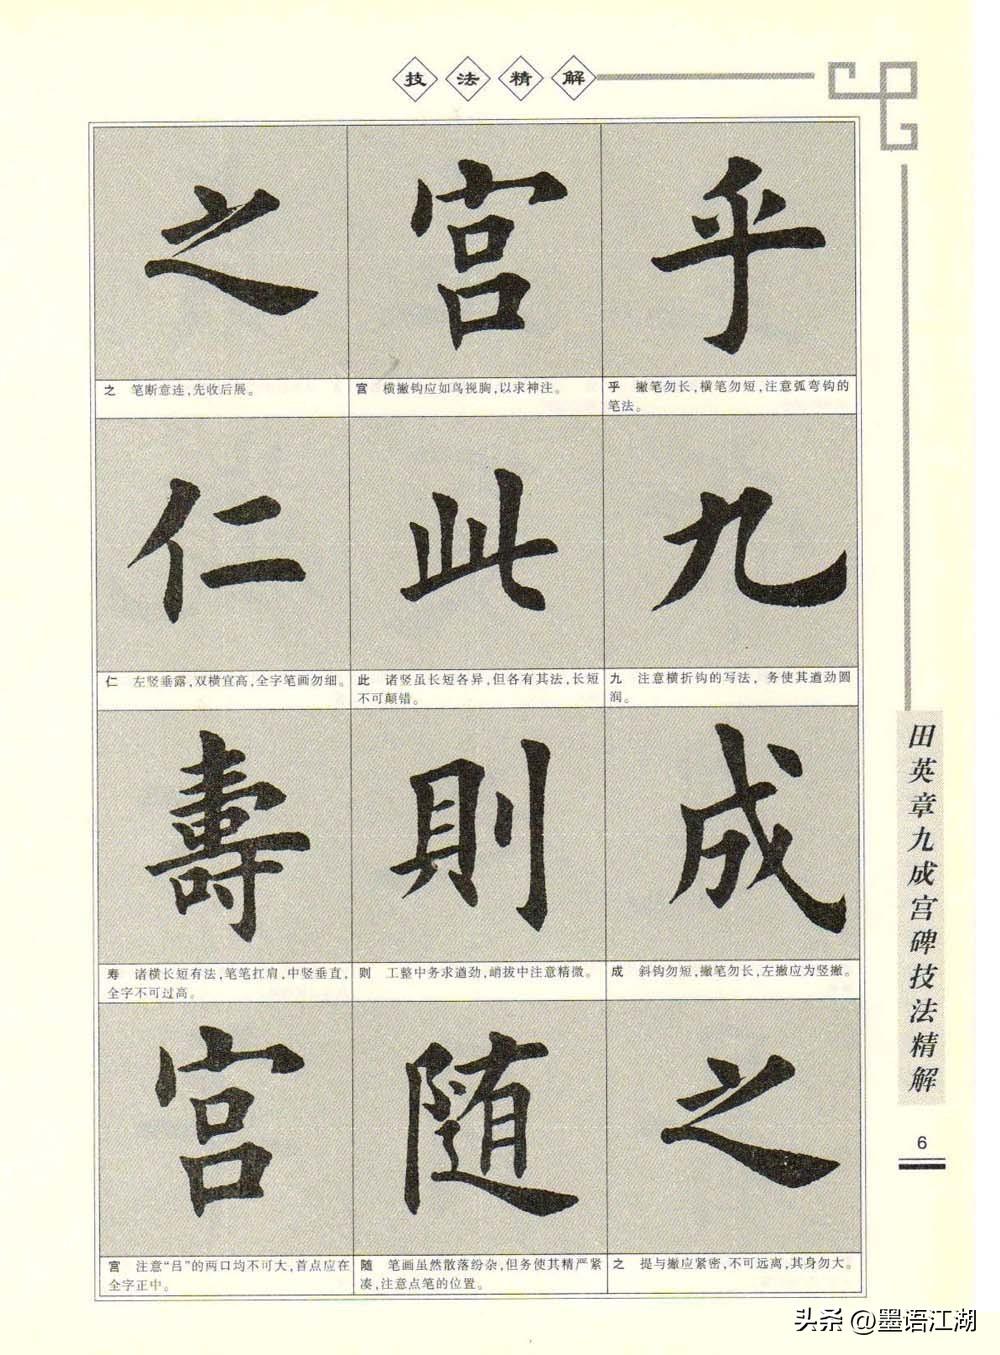 技法精解
乎
宫
之
乎 撇笔勿长,横笔勿短,注意弧弯钩的
笔法。
宫 横撇钩应如鸟视胸,以求神注。
之 笔断意连,先收后展。
九
此
仁
九 注意横折钩的写法, 务使其遒劲圆
润。
此 诸竖虽长短各异,但各有其法,长短
不可颠错。
仁 左竖垂露,双横宜高,全字笔画勿细。
成
則
壽
成 斜钩勿短,撇笔勿长,左撇应为竖撇。
则 工整中务求遒劲,峭拔中注意精微。
寿 诸横长短有法,笔笔扛肩,中竖垂直,
全字不可过高。
之
随
宫
之 提与撇应紧密,不可远离,其身勿大。
随 笔画虽然散落纷杂,但务使其精严紧
凑,注意点笔的位置。
宫 注意“吕”的两口均不可大,首点应在
全字正中。
田英章九成宫碑技法精解
6
头条 @墨语江湖